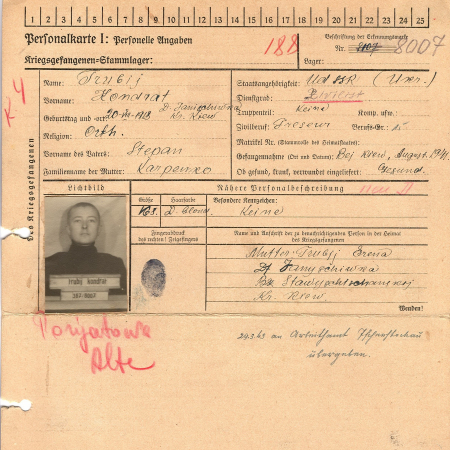 1 2 3 4 5 6 7 8 9 10 11 12 13 14 15 16 17 18 19 20 21 22 23 24 25
Personalkarte I: Personelle Angaben
188
Beschriftung der Erkennungsmarke
Nr. 8107 8007
Kriegsgefangenen-Stammlager:
Lager:
Des Kriegsgefangenen
Name: Trubij
Staatsangehörigkeit: UdSSR (Ukr.)
Vorname: Kondrat
Dienstgrad: Zivilist
Geburtstag und -ort: 20.III.1918
Kr. Kiew
Truppenteil: Keine Komp. usw.:
Religion: Orth.
Zivilberuf: Beruf-Nr.:
Matrikel Nr. (Stammrolle des Heimatstaates):
Vorname des Vaters: Stepan
Gefangennahme (Ort und Datum): Bei Kiew, August. 1941
Familienname der Mutter: Karpenko
Ob gesund, krank, verwundet eingeliefert: Gesund.
Lichtbild
Nähere Personalbeschreibung
Größe Haarfarbe Besondere Kennzeichen:
168. D. blond Keine
Fingerabdruck
des rechten! Zeigefingers
Name und Anschrift der zu benachrichtigenden Person in der Heimat
des Kriegsgefangenen
Mutter: Trubij
Kr. Kiew.
Wenden!
Trubij Kondrat
Alte
29.3.43 an Arbeitsamt Tschenstochau
übergeben.